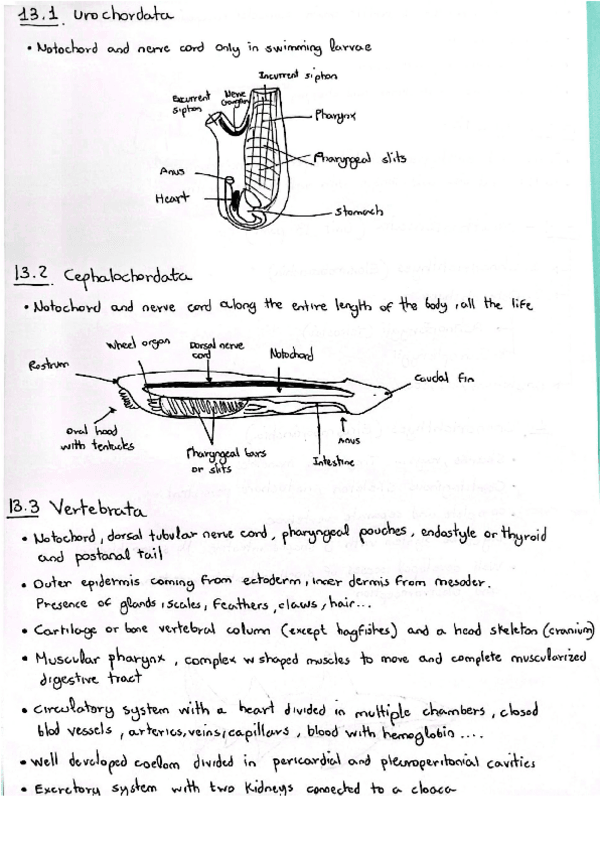 13.1 Urochordata
• Notochord and nerve cord only in swimming larvae
Incurrent siphon
Excurrent siphon
Nerve
Pharynx
Pharyngeal slits
Anus
Heart
Stomach
13.2 Cephalochordata
• Notochord and nerve cord along the entire length of the body, all the life
Wheel organ
Dorsal nerve cord
Notochord
Rostrum
Caudal fin
Oral hood
with tentacles
Pharyngeal bars
or slits
Intestine
Anus
13.3 Vertebrata
• Notochord, dorsal tubular nerve cord, pharyngeal pouches, endostyle or thyroid
and postanal tail
• Outer epidermis coming from ectoderm, inner dermis from mesoder.
Presence of glands, scales, feathers, claws, hair...
• Cartilage or bone vertebral column (except hagfishes) and a head skeleton (cranium)
• Muscular pharynx, complex w shaped muscles to move and complete muscularized
digestive tract
• Circulatory system with a heart divided in multiple chambers, closed
blod vessels, arteries, veins, capillars, blood with hemoglobin ....
• Well developed coelom divided in pericardial and pleuroperitonial cavities
• Excretory system with two kidneys connected to a cloaca